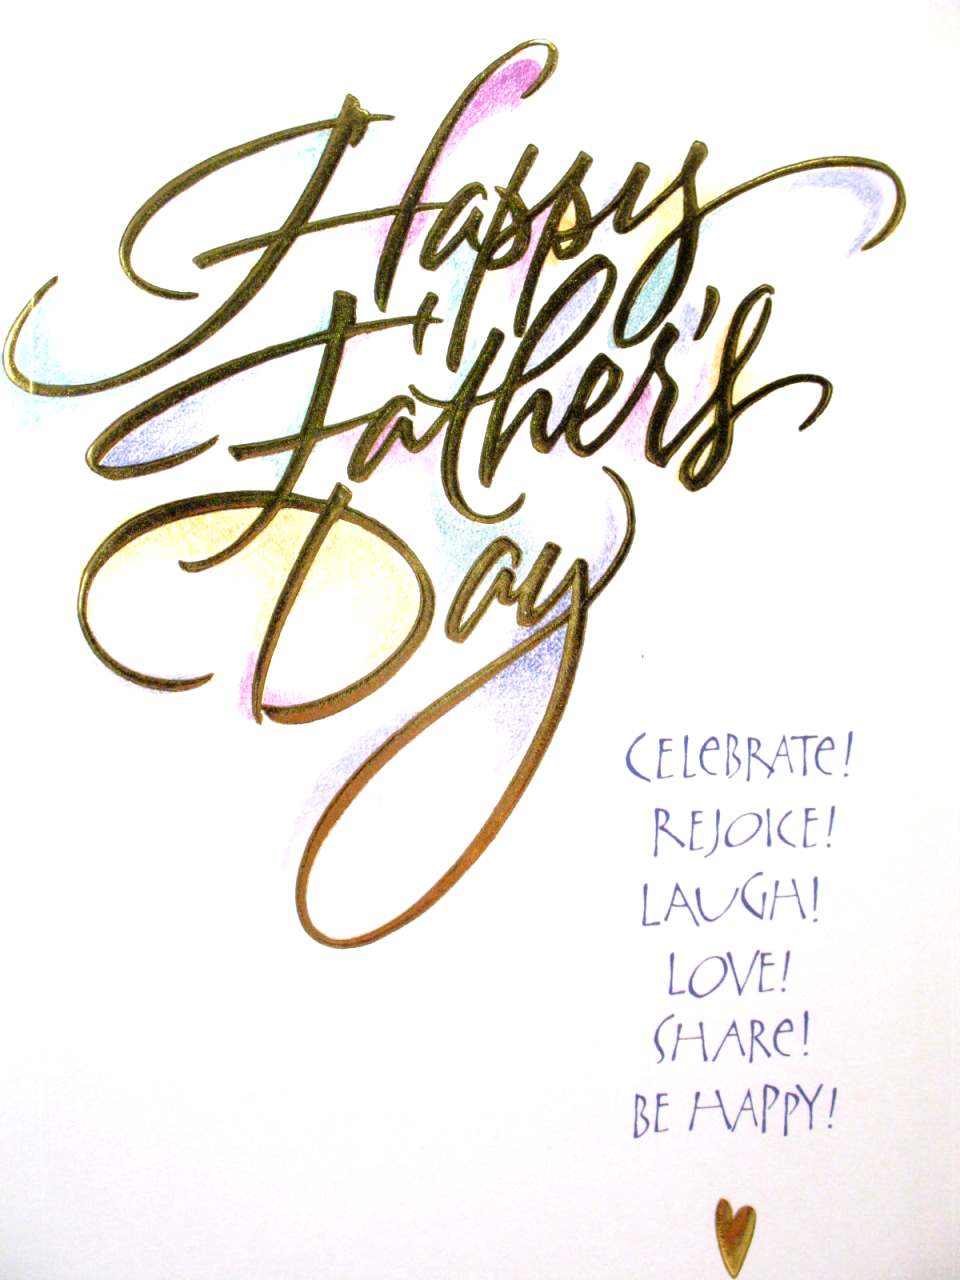 Happy
Father's
Day
CELeBRATe!
REJOICE!
LAUGH!
LOVE!
SHARe!
BE HAPPY!